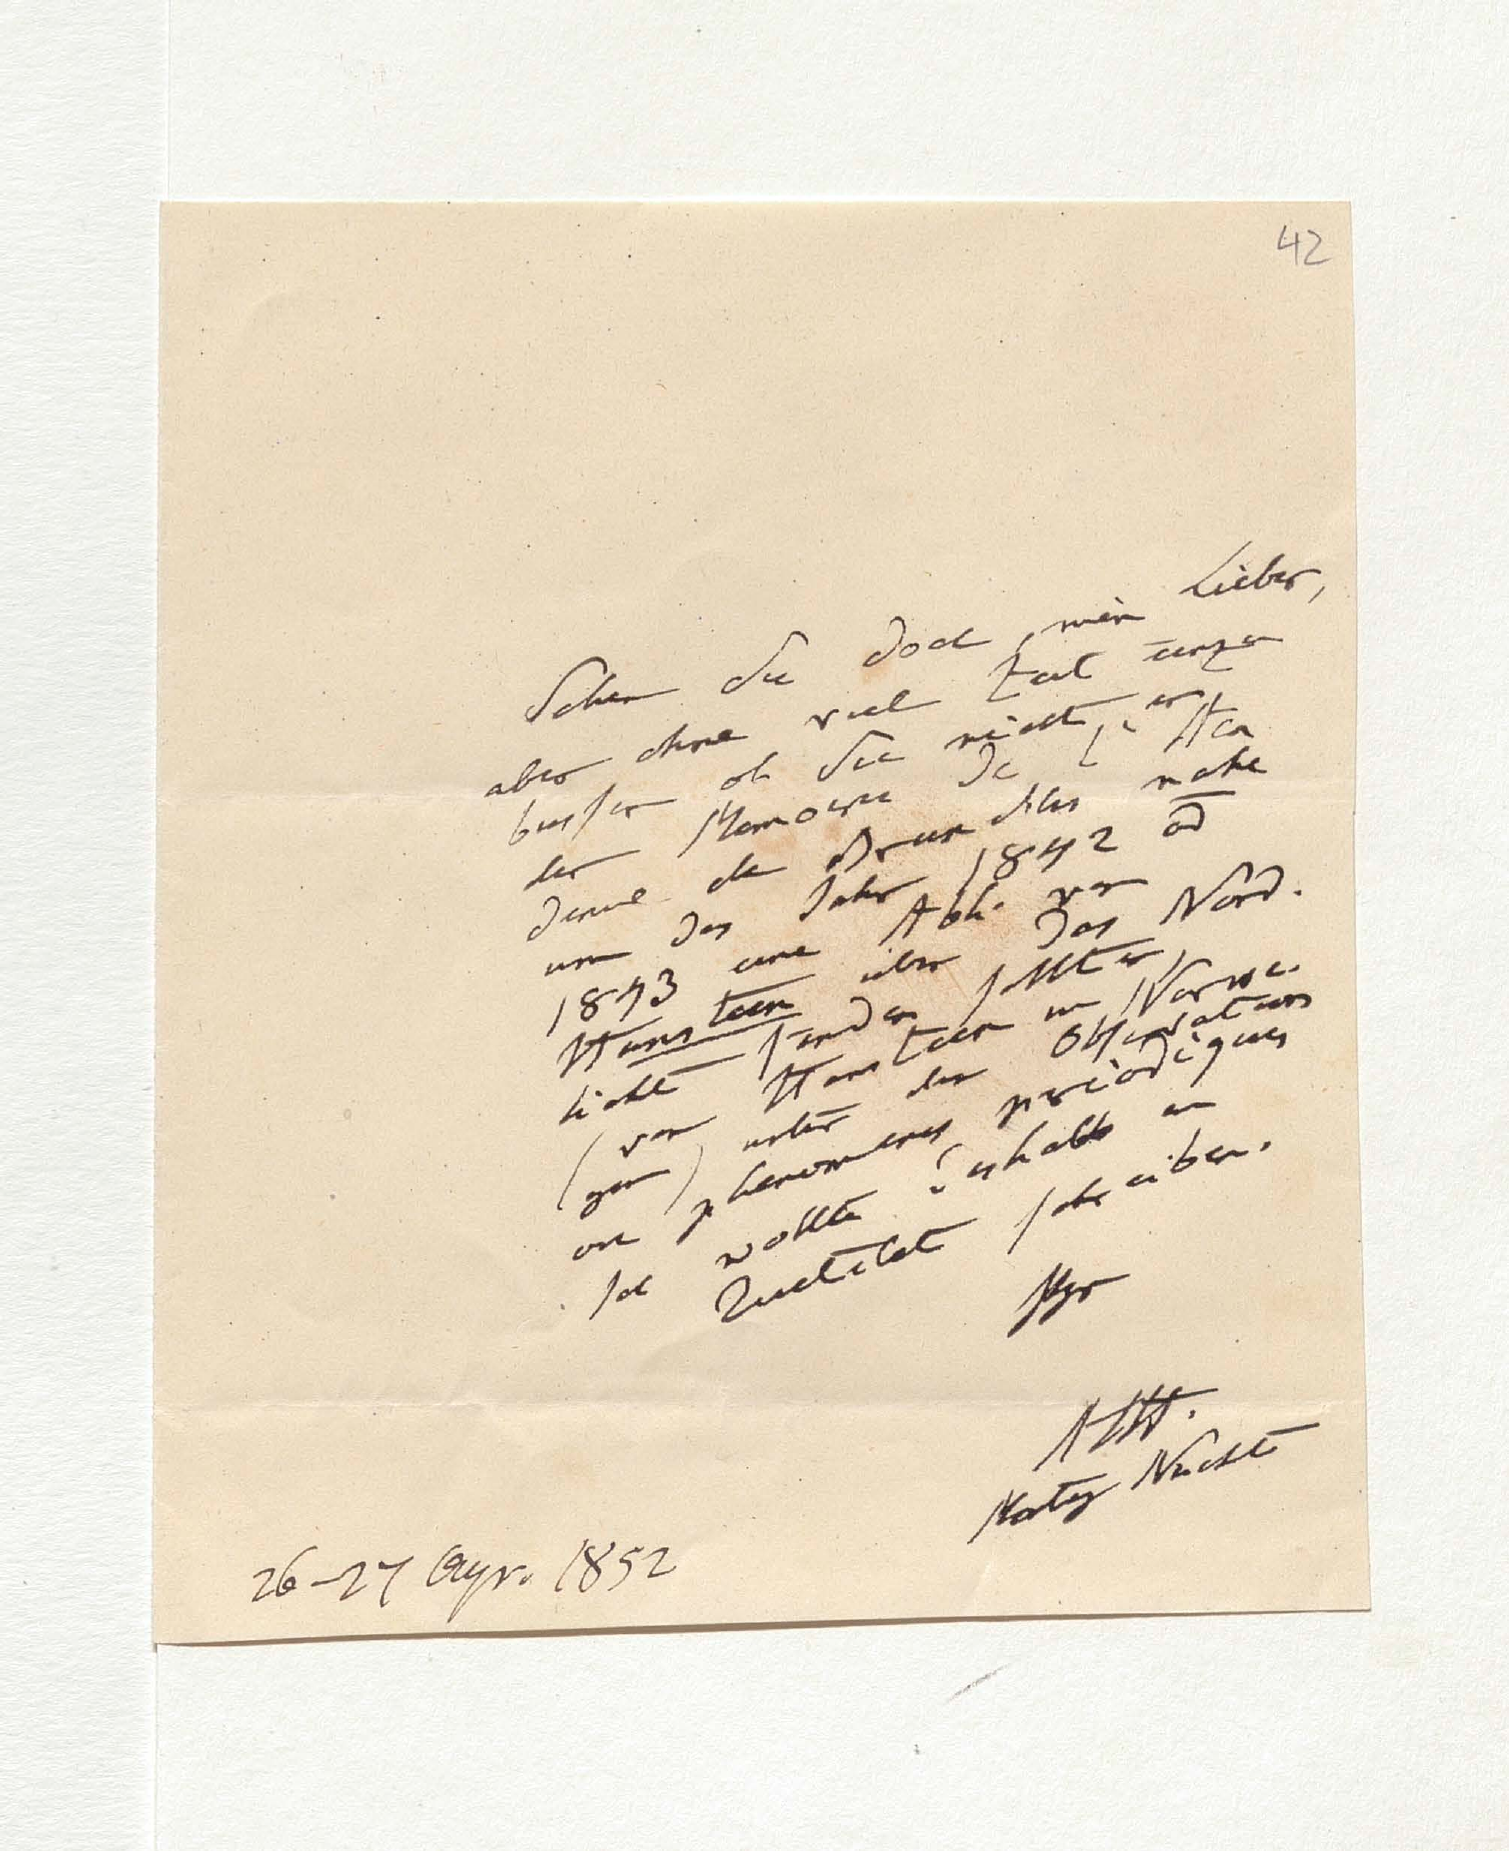 42
Sehen Sie doch, mein Lieber,
aber ohne viel Zeit einzu
büssen ob Sie nicht in
den Memoires de l'Aca
demie de Bruxelles nahe
um das Jahr 1842 od
1843 eine Abh. von
Hansteen über das Nord.
licht finden sollten,
(von Hansteen in Norwe.
gen) unter den Observations
on phenomenes periodiques
Ich wollte deshalb an
Quetelet schreiben.
Ihr
AHt.
Nachts
26–27 Apr. 1852